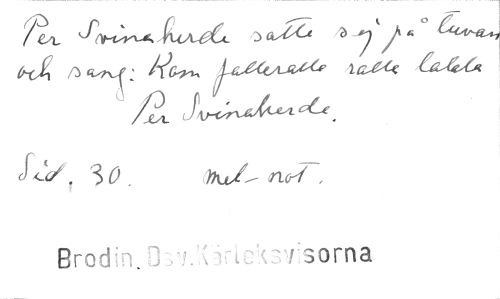 Per Svinaherde satte sej på tuvan
och sang: Kom falleralla ralla lalala
Per Svinaherde.
Sid. 30. mel-not.
Brodin. Dsv.Kärleksvisorna